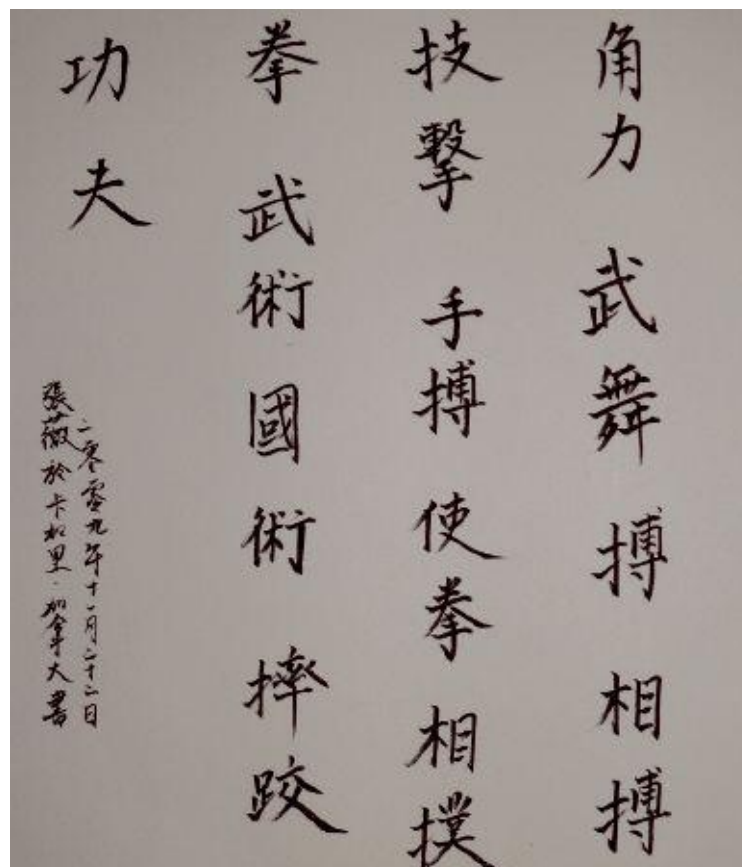 角力 武舞 搏 相搏
技擊 手搏 使拳 相撲
拳 武術 國術 摔跤
功夫
二零零九年十一月二十二日
張薇於卡加里·加拿大書